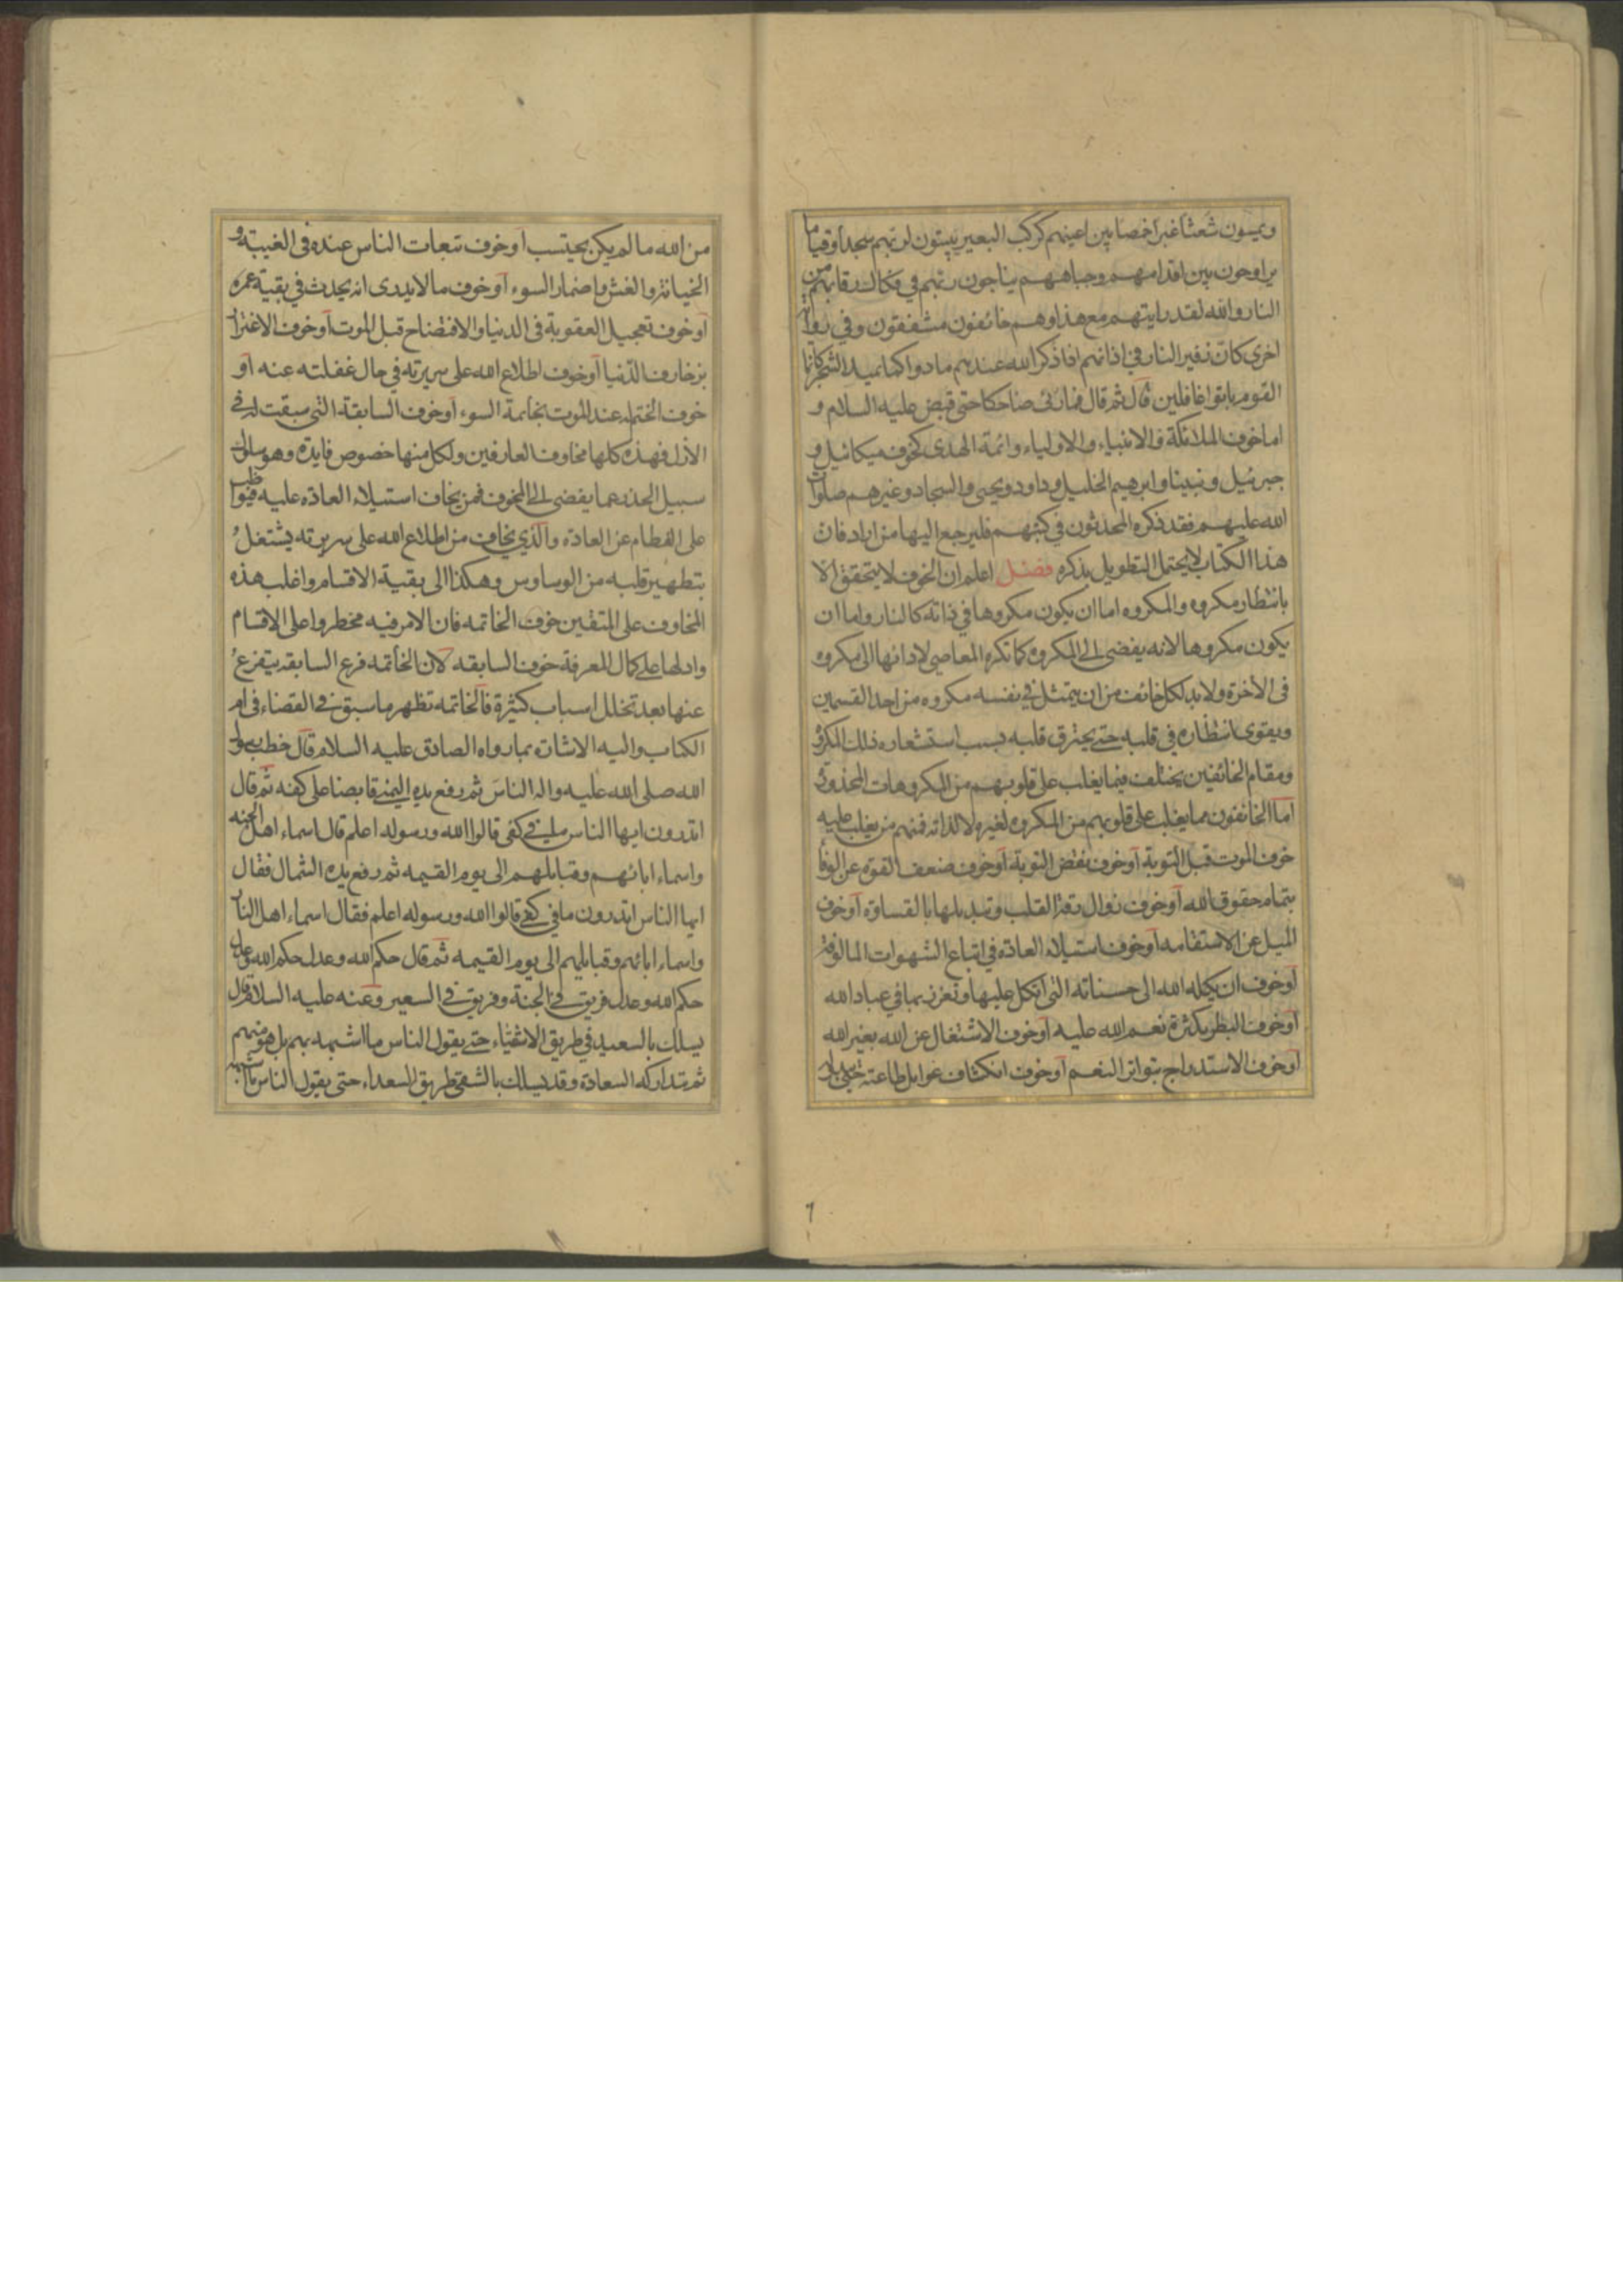 ويمسون شعثا غبرا خمصا بين اعينهم كركب البعير يبيتون لربهم سجدا وقياما
يراوحون بين اقدامهم وجباههم يناجون ربهم في فكاك رقابهم من
النار والله لقد رايتهم مع هذا وهم خائفون مشفقون وفي رواية
اخرى كان زفير النار في اذانهم اذا ذكر الله عندهم مادوا كما يميد الشجر كانما
القوم باتوا غافلين قال ثم قال فما رئى ضاحكا حتى قبض عليه السلام و
اما خوف الملائكة والانبياء والاولياء وائمة الهدى كخوف ميكائيل و
جبرئيل ونبينا وابرهيم الخليل وداود ويحيى والسجاد وغيرهم صلوات
الله عليهم فقد ذكره المحدثون في كتبهم فليرجع اليها من اراد فان
هذا الكتاب لا يحتمل التطويل بذكره فصل اعلم ان الخوف لا يتحقق الا
بانتظار مكروه والمكروه اما ان يكون مكروها في ذاته كالنار واما ان
يكون مكروها لانه يفضى الى المكروه كما تكره المعاصي لادائها الى مكروه
فى الاخرة ولا بد لكل خائف من ان يتمثل في نفسه مكروه من احد القسمين
ويقوى انتظاره في قلبه حتى يحترق قلبه بسبب استشعاره ذلك المكروه
ومقام الخائفين يختلف فيما يغلب على قلوبهم من المكروهات المحذورة
اما الخائفون مما يغلب على قلوبهم من المكروه لغيره لا لذاته فمنهم من يغلب عليه
خوف الموت قبل التوبة او خوف نقض التوبة او خوف ضعف القوة عن الوفا
بتمام حقوق الله او خوف زوال رقة القلب وتبديلها بالقساوة او خوف
الميل عن الاستقامة او خوف استيلاء العادة في اتباع الشهوات المالوفة
او خوف ان يكله الله الى حسناته التى اتكل عليها وتعزز بها في عباد الله
او خوف البطر بكثرة نعم الله عليه او خوف الاشتغال عن الله بغير الله
او خوف الاستدراج بتواتر النعم او خوف انكشاف غوايل طاعته
٦
من الله ما لم يكن يحتسب او خوف تبعات الناس عنده فى الغيبة و
الخيانة والغش واضمار السوء او خوف ما لا يدرى انه يحدث في بقية عمره
او خوف تعجيل العقوبة فى الدنيا والافتضاح قبل الموت او خوف الاغترار
بزخارف الدنيا او خوف اطلاع الله على سريرته في حال غفلته عنه او
خوف الختم له عند الموت بخاتمة السوء او خوف السابقة التى سبقت له في
الازل فهذه كلها مخاوف العارفين ولكل منها خصوص فايدة وهو سلوك
سبيل الحذر عما يفضى الى المخوف فمن يخاف استيلاء العادة عليه فيواظب
على الفطام عن العادة والذي يخاف من اطلاع الله على سريرته يشتغل
بتطهير قلبه من الوساوس وهكذا الى بقية الاقسام واغلب هذه
المخاوف على المتقين خوف الخاتمة فان الامر فيه مخطر واعلى الاقسام
وادلها على كمال المعرفة خوف السابقة لان الخاتمة فرع السابقة يتفرع
عنها بعد تخلل اسباب كثيرة فالخاتمة تظهر ما سبق في القضاء في ام
الكتاب واليه الاشارة بما رواه الصادق عليه السلام قال خطب رسول
الله صلى الله عليه واله الناس ثم رفع يده اليمنى قابضا على كفه ثم قال
اتدرون ايها الناس ما في كفى قالوا الله ورسوله اعلم قال اسماء اهل الجنة
واسماء ابائهم وقبايلهم الى يوم القيمة ثم رفع يده الشمال فقال
ايها الناس اتدرون ما في كفى قالوا الله ورسوله اعلم فقال اسماء اهل النار
واسماء ابائهم وقبايلهم الى يوم القيمة ثم قال حكم الله وعدل حكم الله وعدل
حكم الله وعدل فريق في الجنة وفريق في السعير وعنه عليه السلام قال
يسلك بالسعيد في طريق الاشقياء حتى يقول الناس ما اشبهه بهم بل هو منهم
ثم تتداركه السعادة وقد يسلك بالشقي طريق السعداء حتى يقول الناس ما اشبهه